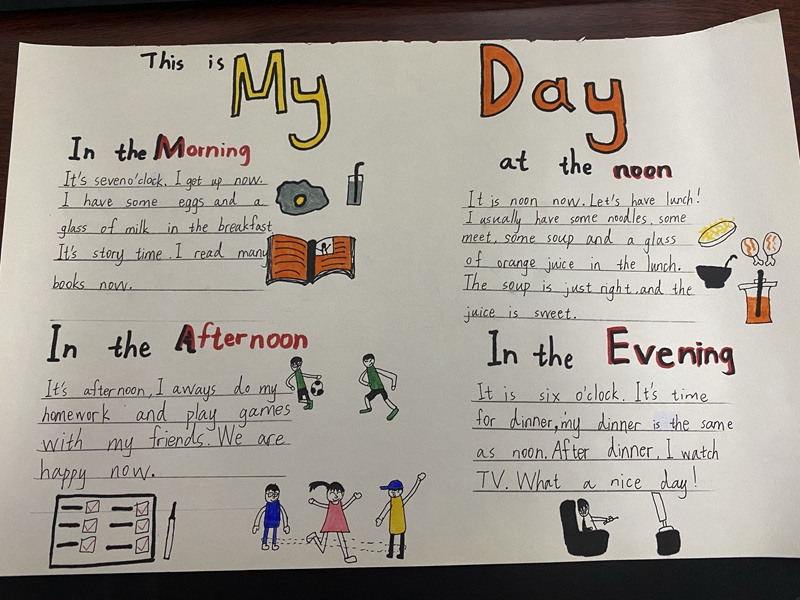 This is My Day
In the Morning
It's seven o'clock. I get up now.
I have some eggs and a
glass of milk in the breakfast
It's story time. I read many
books now.
at the noon
It is noon now. Let's have lunch!
I usually have some noodles, some
meet, some soup and a glass
of orange juice in the lunch.
The soup is just right.and the
juice is sweet.
In the Afternoon
It's afternoon, I aways do my
homework and play games
with my friends. We are
happy now.
In the Evening
It is six o'clock. It's time
for dinner,my dinner is the same
as noon. After dinner, I watch
TV. What a nice day!